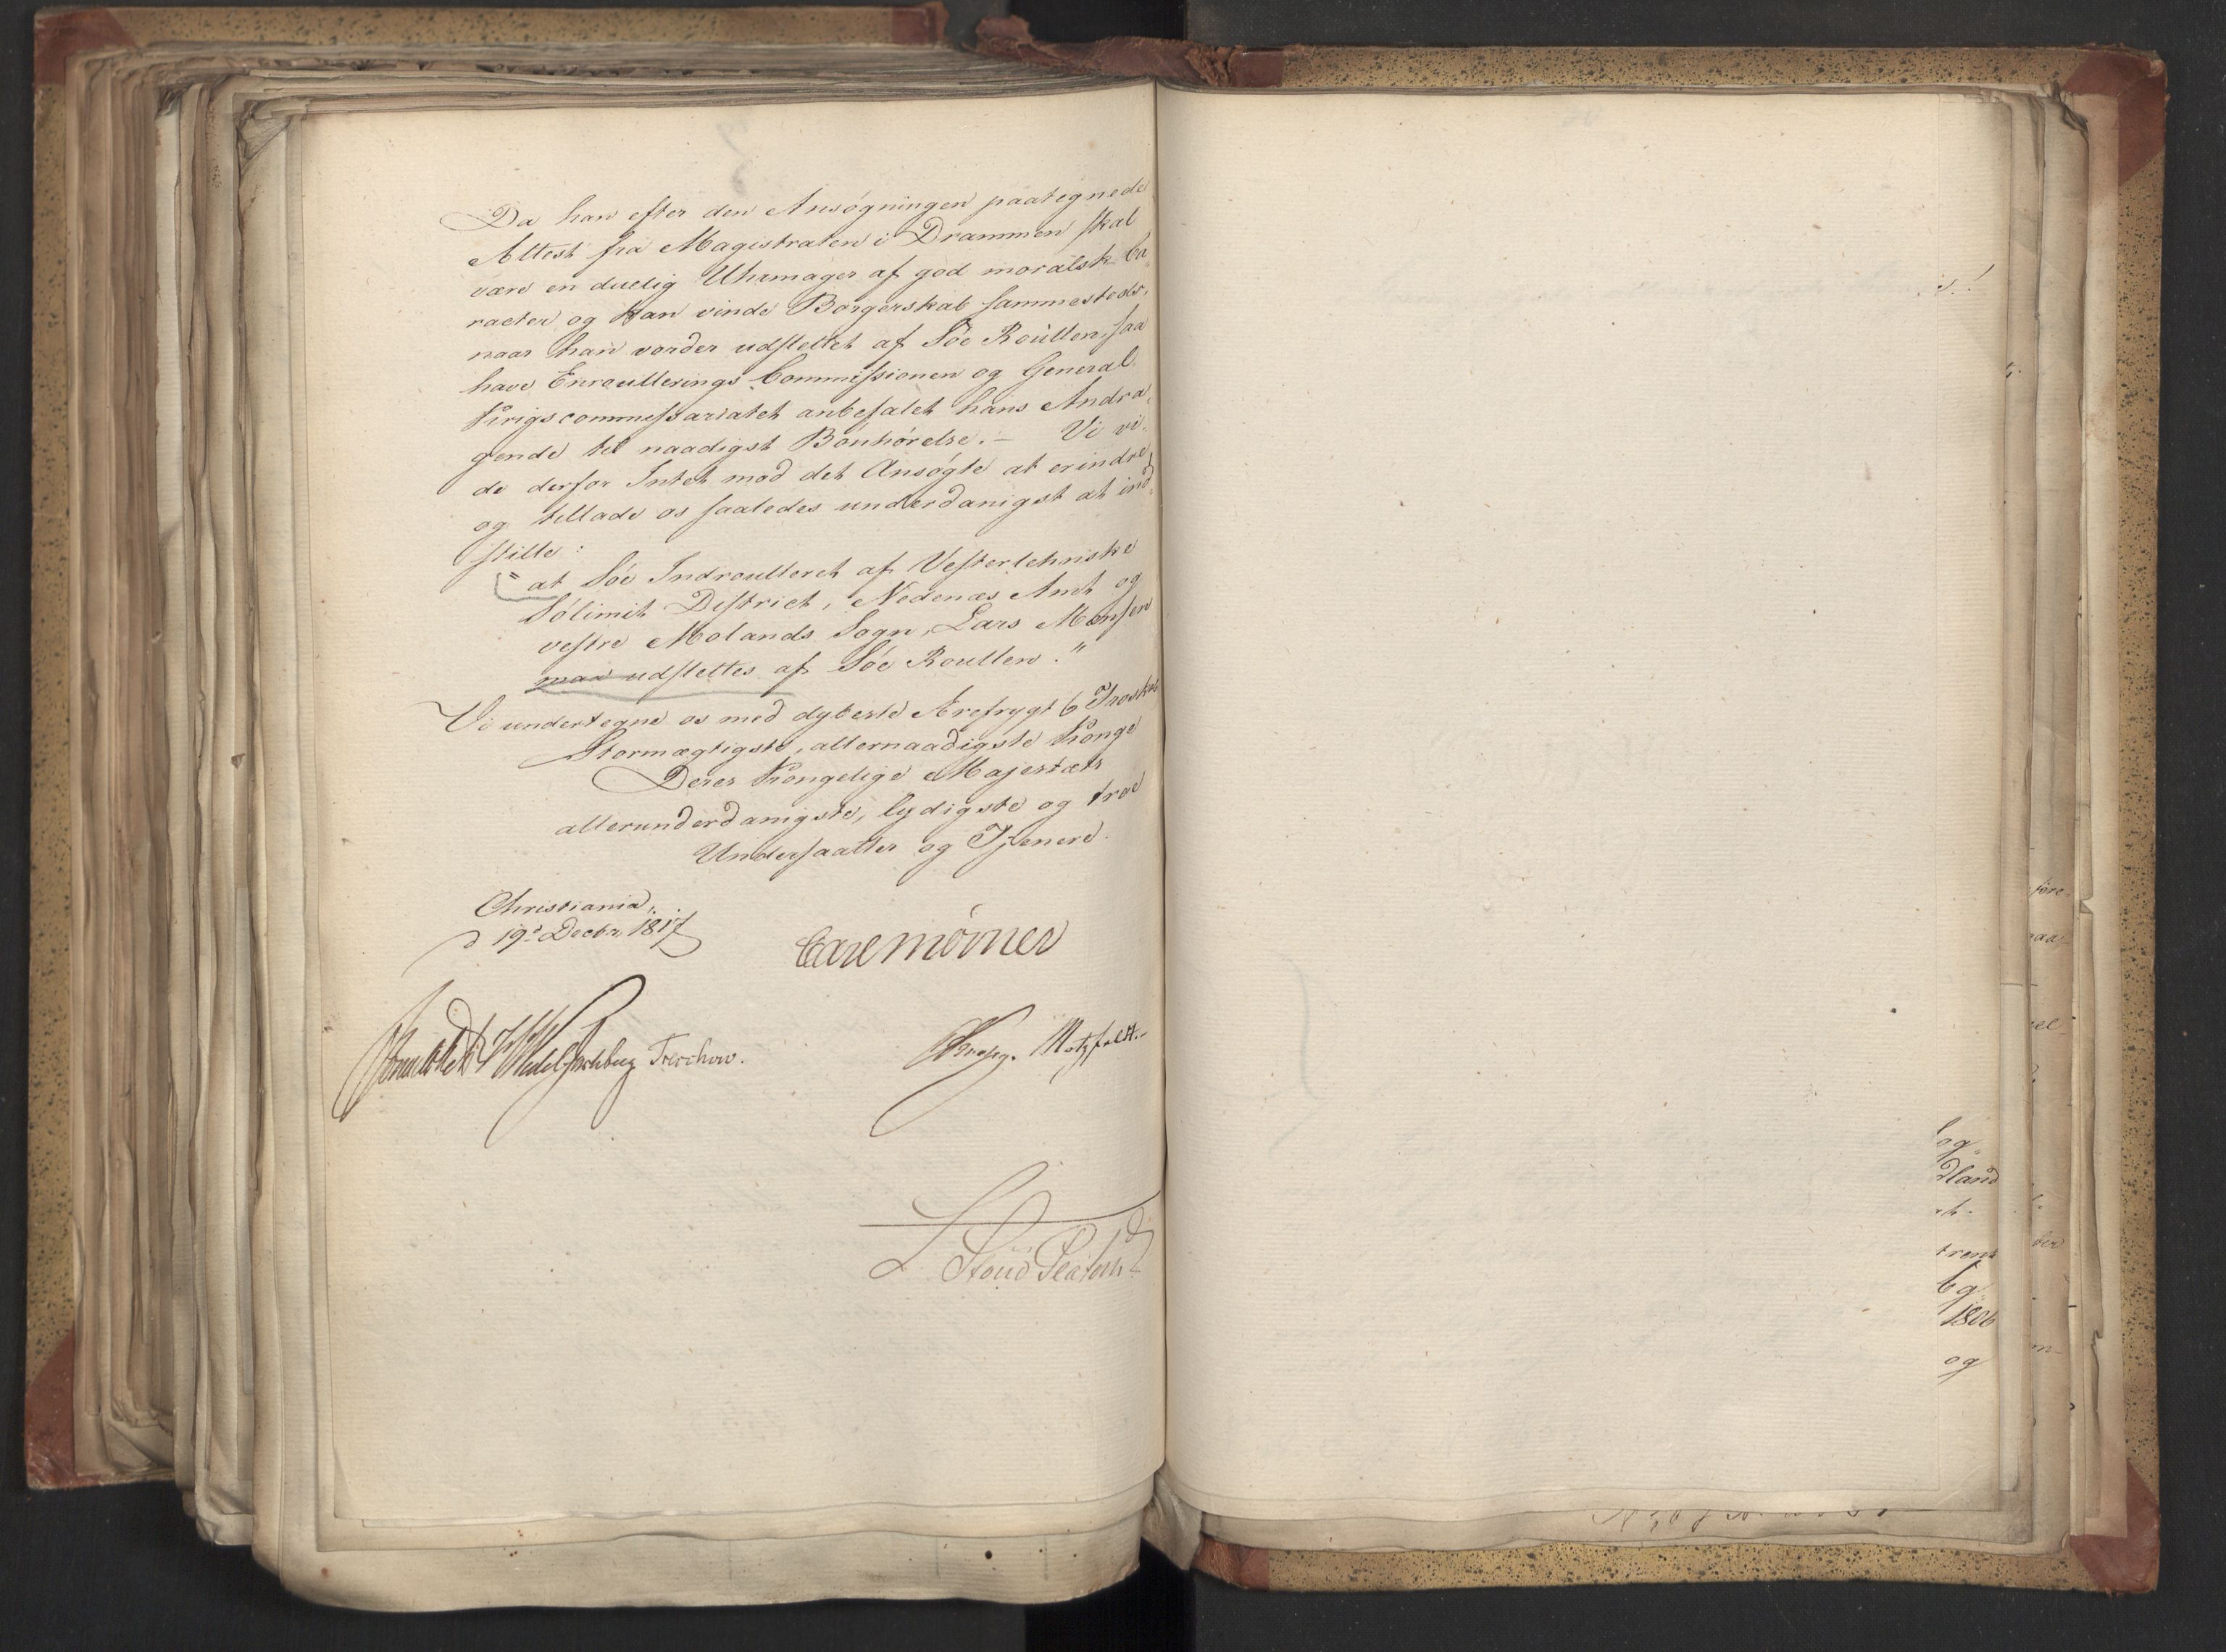 Da han efter den Ansøgningen paategnede
Attest fra Magistraten i Drammen skal
være en duelig Uhrmager af god moralsk Ca
racter og kan vinde Borgerskab sammesteds,
naar han vorder udslettet af Søe Roullen, saa
have Enroullerings Commissionen og General
Krigscommissariatet anbefalet hans Andra,
gende til naadigst Bønhørelse. – Vi vi-
de derfor Intet mod det Ansøgte at erindre,
og tillade os saaledes underdanigst at ind,
stille:
"at Søe Indroulleret af Vesterlehnske
Sølimit District, Nedenæs Amt og
vestre Molands Sogn, Lars Monsen
maa udslettes af Søe Roullen."
Vi undertegne os med dybeste Ærefrygt & Troskab
Stormægtigste, allernaadigste Konge
Deres Kongelige Majestæts
allerunderdanigste, lydigste og troe
Undersaatter og Tjenere.
Christiania,
d 19d Decbr 1817
Carl Mörner
Sommerhielm Wedel Jarlsberg Treschow.
Krogh. Motzfeldt.
Stoud Platou
og
dland
1806
og